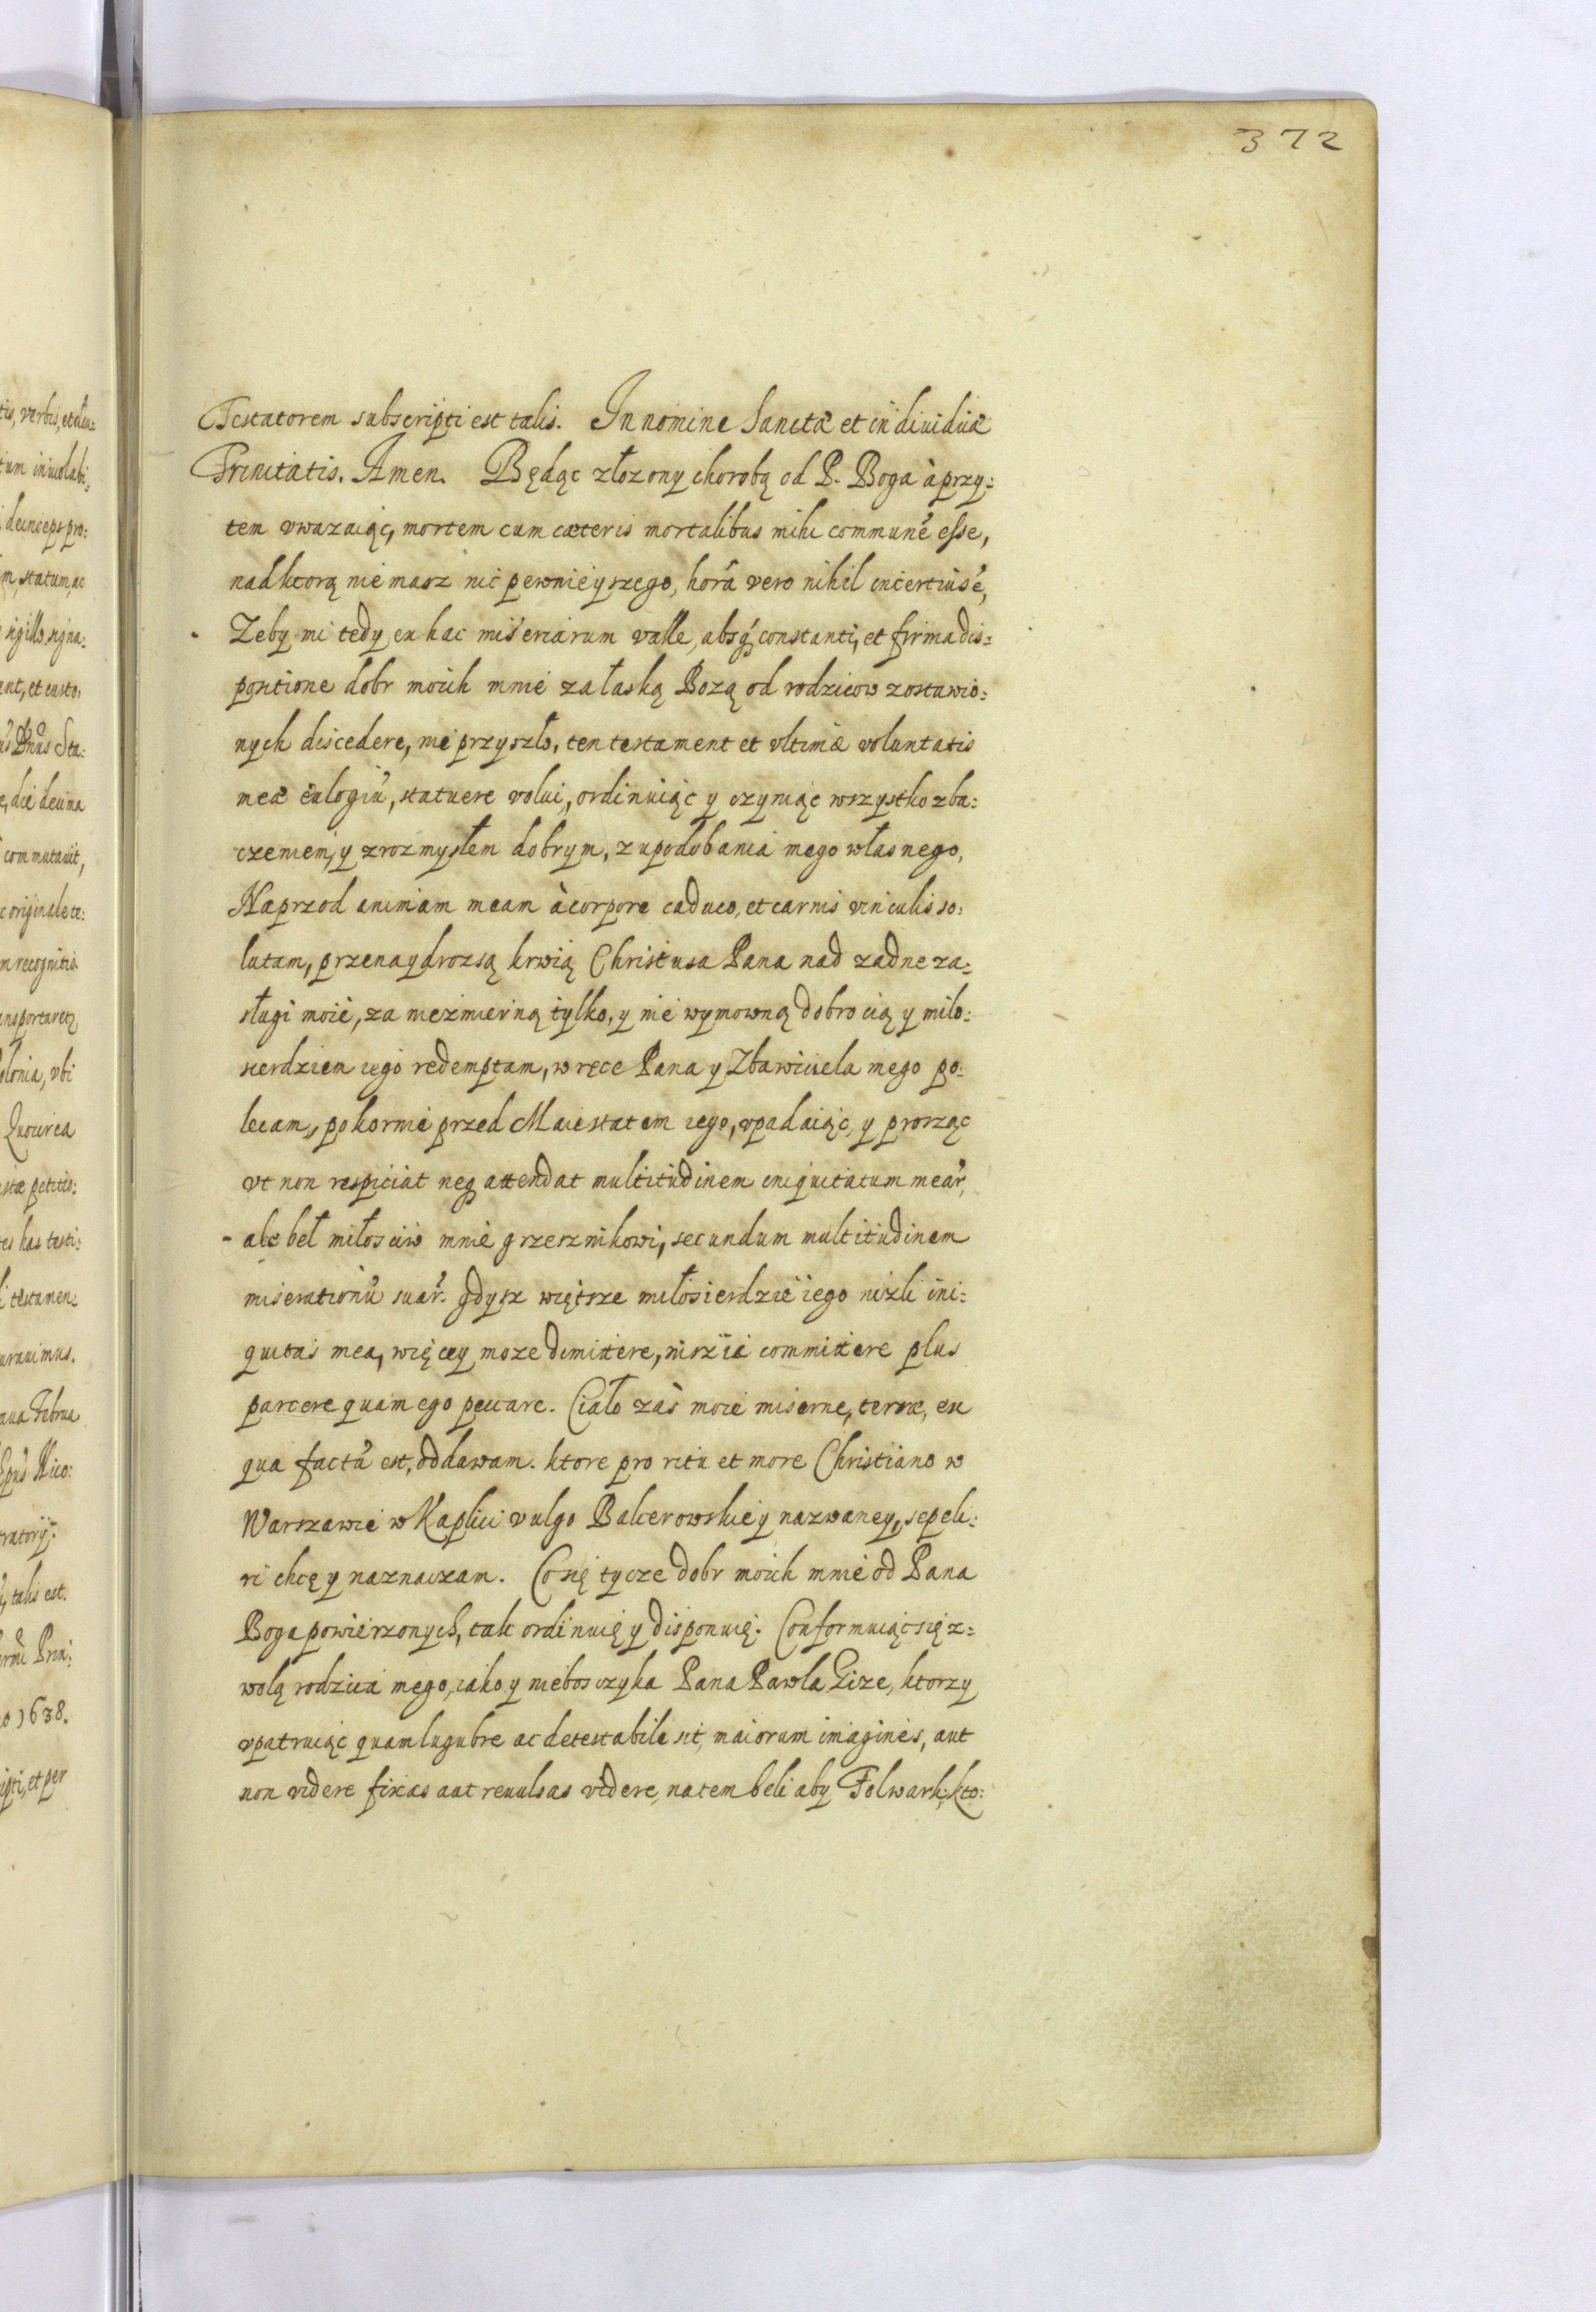 372
Testatorem subscripti est talis. In nomine Sanctæ et individuæ
Trinitatis. Amen. Będąc złozony chorobą od P. Boga à przy:
tem vwazaiąc, mortem cum cæteris mortalibus mihi commune͂ esse,
nad ktorą niemasz nic pewnieyszego, hora vero nihil incertius e͂,
Zeby mi tedy ex hac miseriarum valle, absq́ constanti, et firma dis=
positione dobr moich mnie za łaską Bozą od rodzicow zostawio=
nych discedere, nie przyszło, ten testament et vltimæ voluntatis
meæ eulogiu͂, statuere volui, ordinuiąc y czyniąc wszystko z ba:
czeniem, y z rozmysłem dobrym, z upodobania mego własnego,
Naprzod animam meam à corpore caduco, et carnis vinculis so:
lutam, przenaydrozsą krwią Christusa Pana nad zadne za:
sługi moie, za niezmierną tylko, y nie wymowną dobrocią y miło:
sierdziem iego redemptam, w ręce Pana y Zbawiciela mego po:
lecam, pokornie przed Maiestatem iego, vpadaiąc, y prosząc
vt non respiciat neq attendat multitudinem iniquitatum mear͂,
- ale beł miłosciw mnie grzesznikowi, secundum multitudinem
miserationu͂ suar͂. gdysz więtsze miłosierdzie iego nizli ini:
quitas mea, więcey moze dimittere, nisz ia committere plus
parcere quam ego peccare. Ciało zàs moie miserne, terræ, ex
qua factu͂ est, oddawam. ktore pro ritu et more Christiano w
Warszawie w Kaplici vulgo Balcerowskiey nazwaney, sepeli:
ri chcę y naznaczam. Co się tycze dobr moich mnie od Pana
Boga powierzonych, tak ordinuię y disponuię. Conformuiąc się z=
wolą rodzica mego, iako y nieboszczyka Pana Pawla Gize, ktorzy
vpatruiąc quam lugubre ac detestabile sit, maiorum imagines, aut
non videre fixas aut reuulsas videre, na tem beli aby Folwark, kto:
tum inuiolabi:
deinceps pro:
statum, ac
sigillo, signa:
die decima
commutauit,
originale te:
recognitio
vbi
Quocirca
petitio:
has testi:
testamen:
Nico:
talis est.
1638.
et per